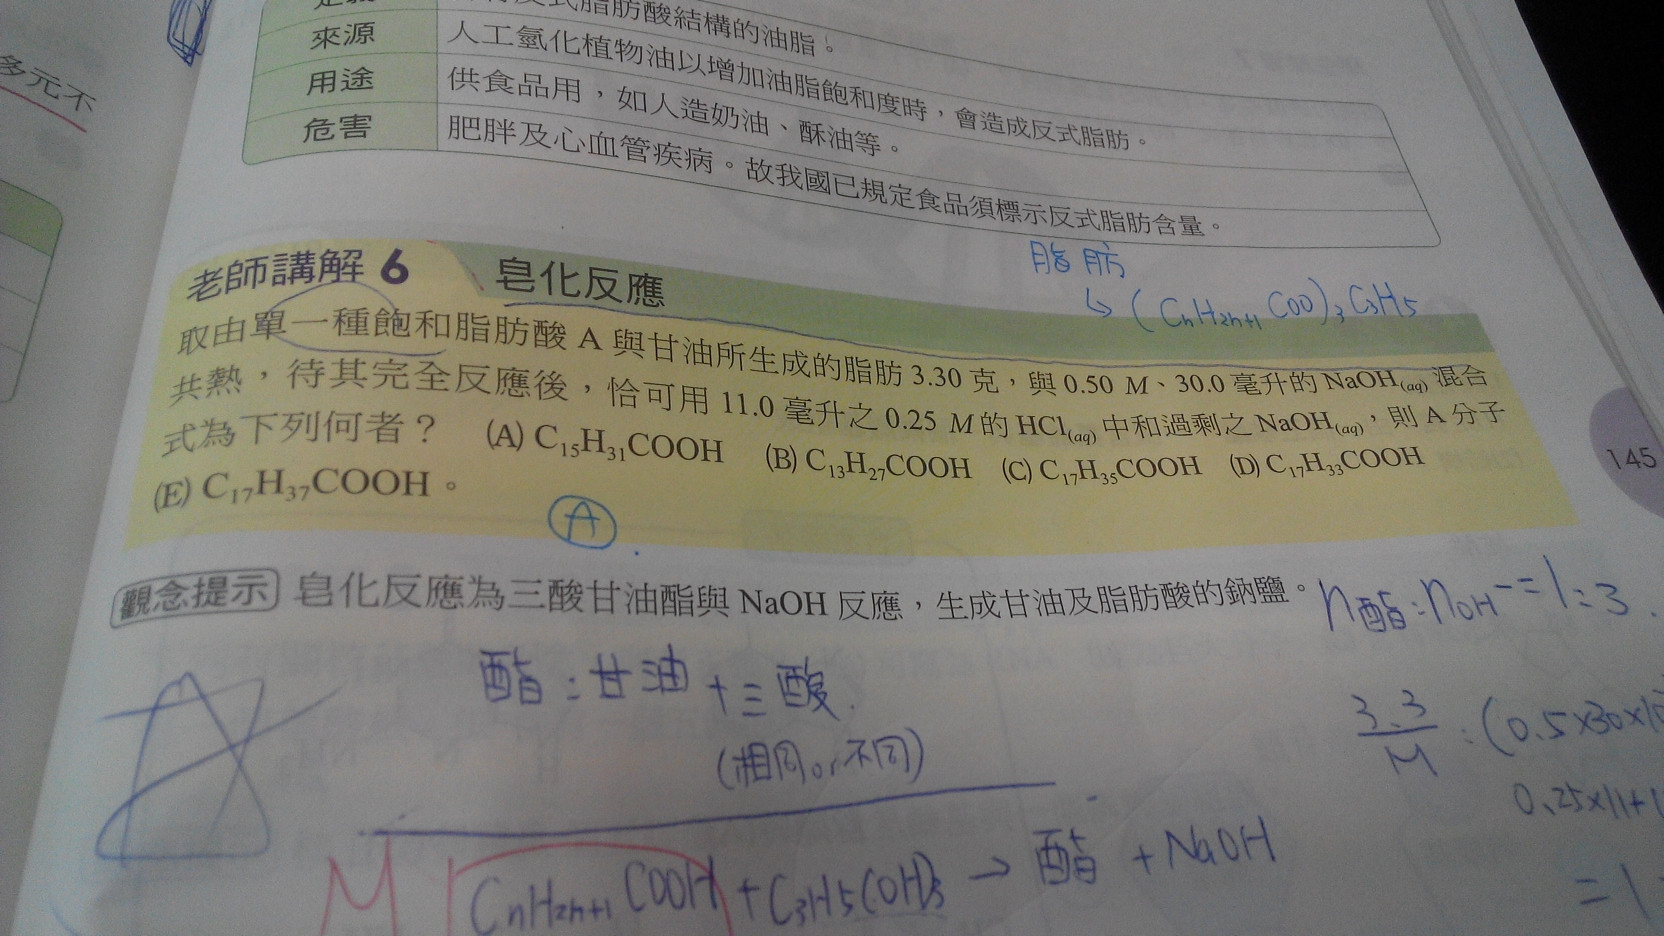 多元不
反式脂肪酸結構的油脂。
來源 人工氫化植物油以增加油脂飽和度時，會造成反式脂肪。
用途 供食品用，如人造奶油、酥油等。
危害 肥胖及心血管疾病。故我國已規定食品須標示反式脂肪含量。
脂肪
↳ (CnH2n+1COO)3C3H5
老師講解 6 皂化反應
取由單一種飽和脂肪酸 A 與甘油所生成的脂肪 3.30 克，與 0.50 M、30.0 毫升的 NaOH(aq) 混合
共熱，待其完全反應後，恰可用 11.0 毫升之 0.25 M 的 HCl(aq) 中和過剩之 NaOH(aq)，則 A 分子
式為下列何者？ (A) C15H31COOH (B) C13H27COOH (C) C17H35COOH (D) C17H33COOH
(E) C17H37COOH。
A
145
觀念提示 皂化反應為三酸甘油酯與 NaOH 反應，生成甘油及脂肪酸的鈉鹽。
n酯:nOH-=1:3.
酯:甘油+三酸.
(相同or不同)
3.3/M : (0.5×30×10
0.25×11+
=1
M
CnH2n+1COOH+C3H5(OH)3→酯+NaOH